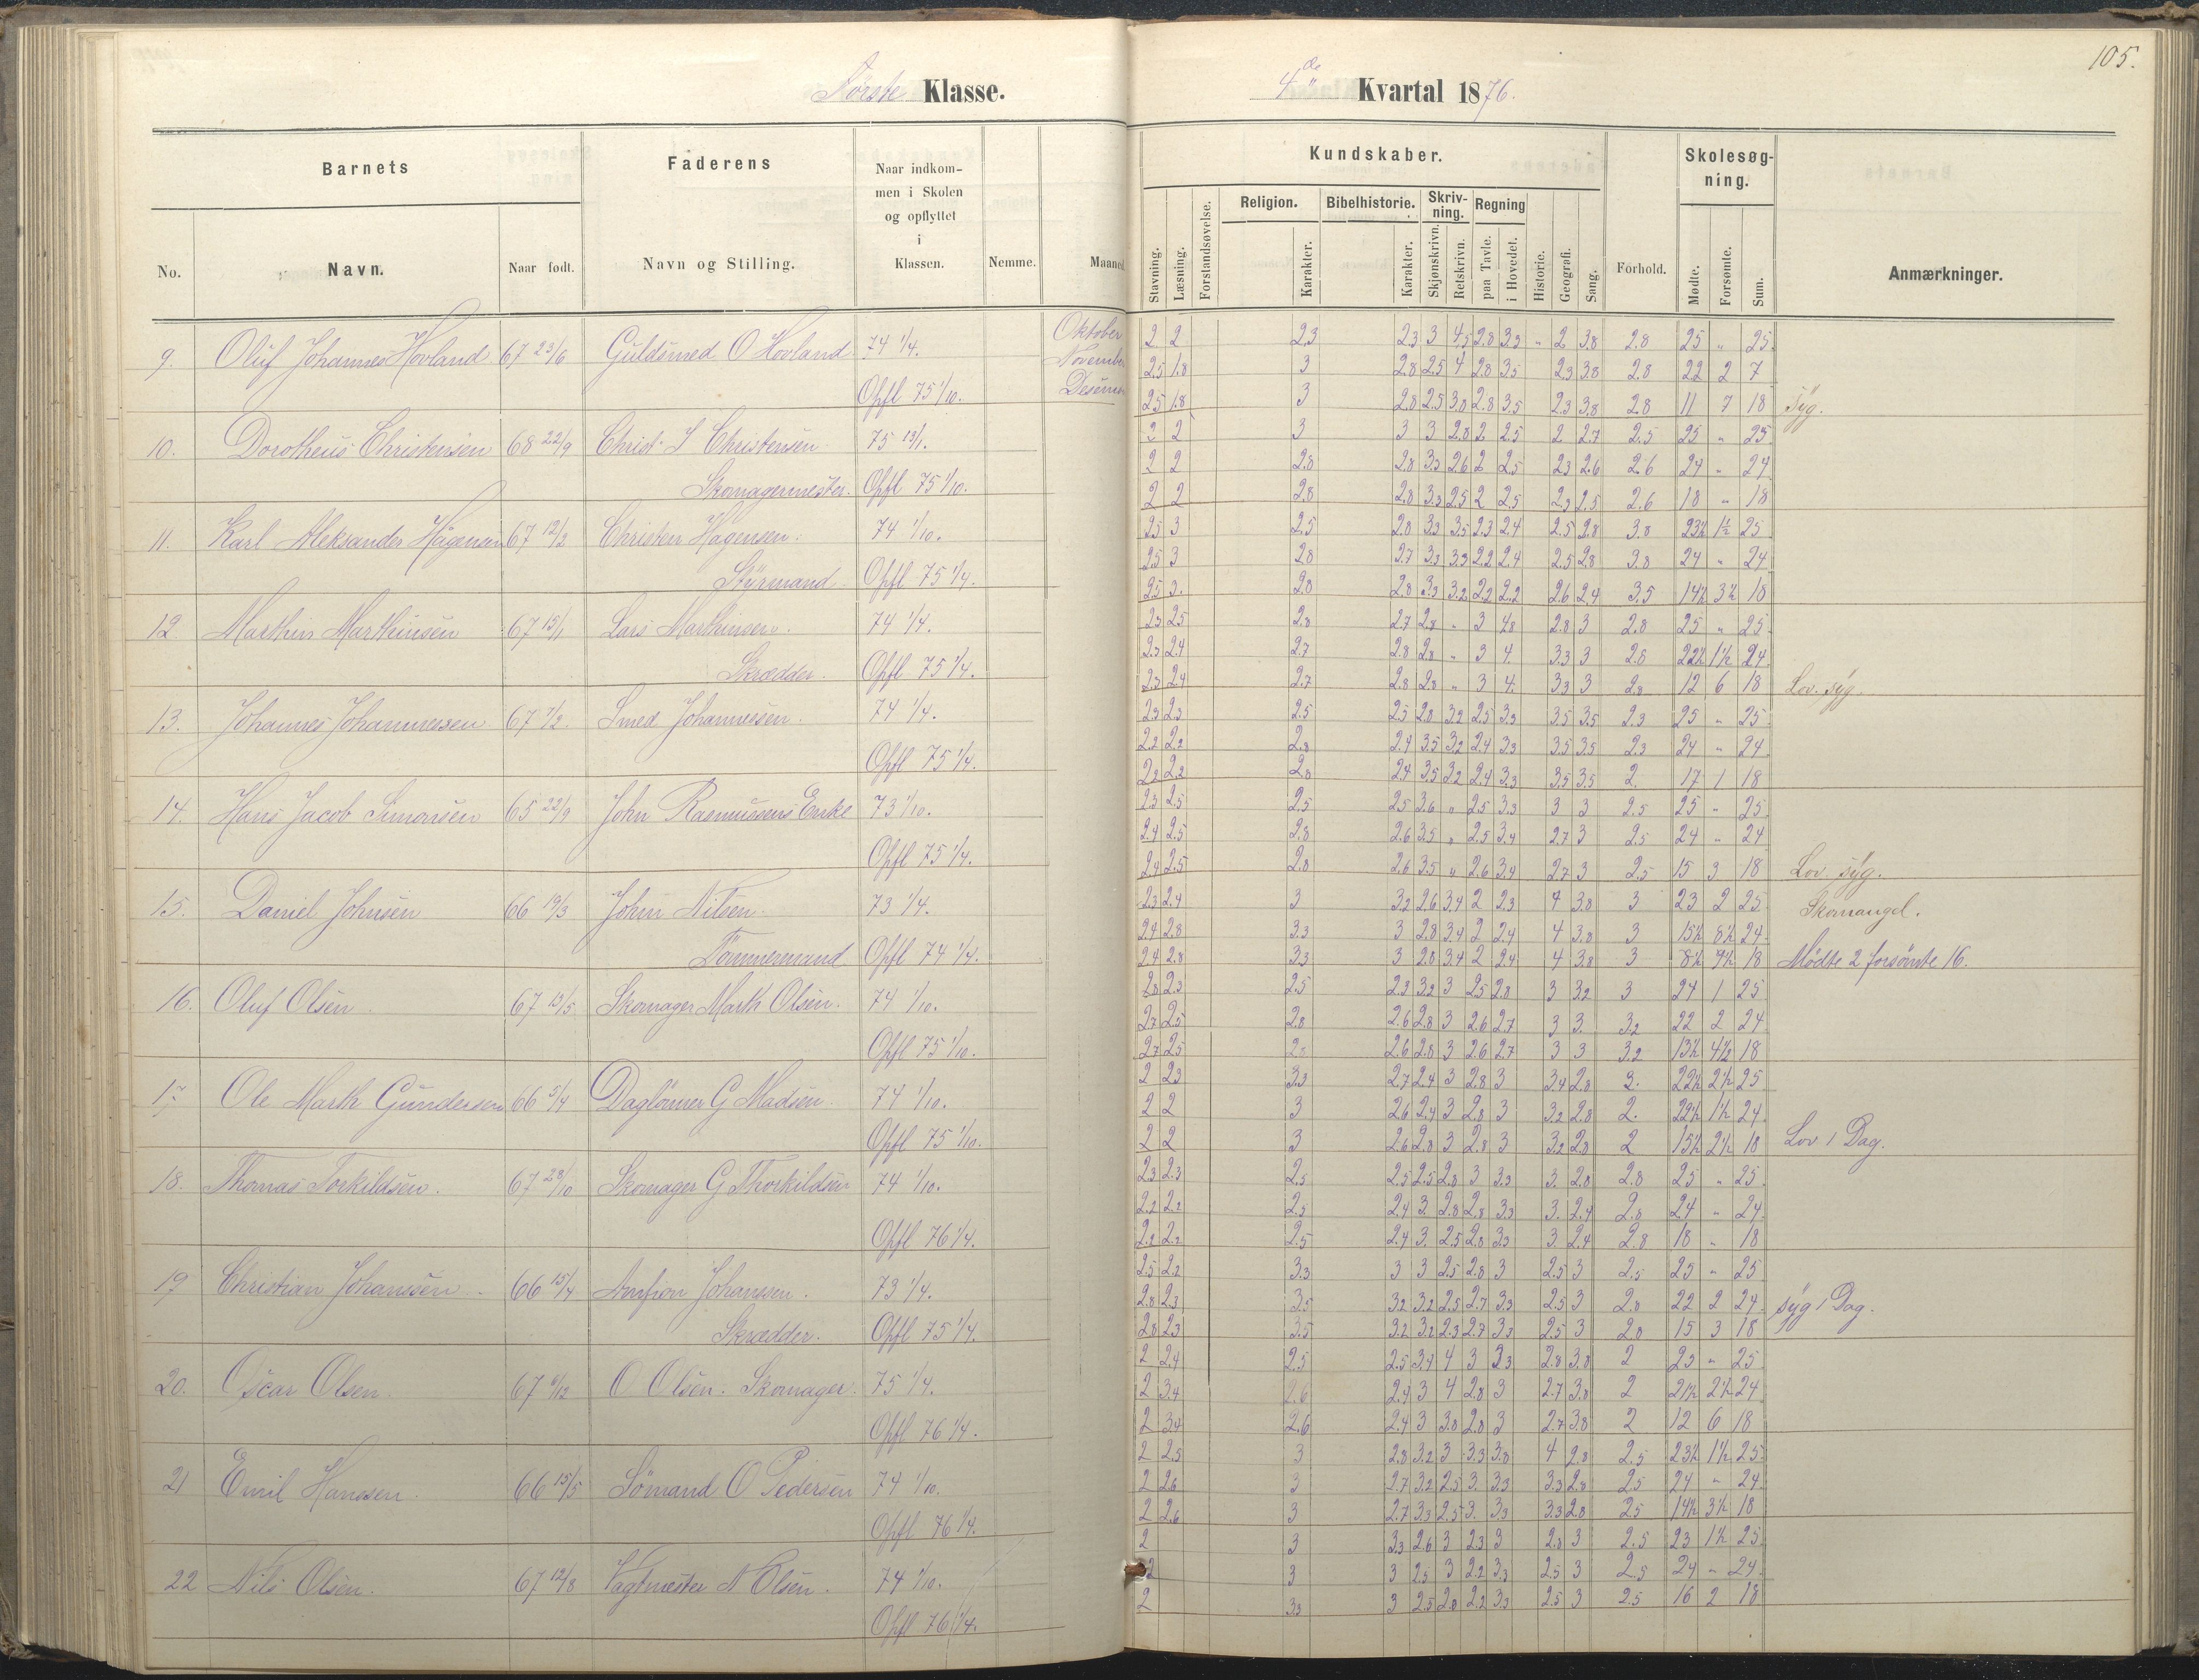 105.
Første Klasse.
4de Kvartal 1876.
Barnets
Faderens
Naar indkom-
men i Skolen
og opflyttet
i
Klassen.
Nemme.
Maaned.
No.
Navn.
Naar født.
Navn og Stilling.
Kundskaber.
Skolesøg-
ning.
Stavning.
Læsning.
Forstandsøvelse.
Religion.
Karakter.
Bibelhistorie.
Karakter.
Skriv-
ning.
Skjønskrivn.
Retskrivn.
Regning
paa Tavle.
i Hovedet.
Historie.
Geografi.
Sang.
Forhold.
Mødte.
Forsømte.
Sum.
Anmærkninger.
9. Oluf Johannes Hovland 67 23/6 Guldsmed O Hovland 74 1/4. Oktober 2 2 2.3 2.3 3 4.5 2.8 3.3 " 2 3.8 2.8 25 " 25.
November 2.5 1.8 3 2.8 2.5 4 2.8 3.5 2.3 3.8 2.8 22 2 7
Opfl 75 1/10. 2.5 1.8 3 2.8 2.5 3.8 2.8 3.5 2.3 3.8 2.8 11 7 18 syg.
10. Dorotheus Christensen 68 22/9 Christ. J Christensen 75 13/1. 2 2 3 3 3 2.8 2 2.5 2 2.7 2.5 25 " 25
2 2 2.8 2.8 3.3 2.6 2 2.5 2.3 2.6 2.6 24 " 24
Skomagermester. Opfl 75 1/10. 2 2 2.8 2.8 3.3 2.5 2 2.5 2.3 2.5 2.6 18 " 18
11. Karl Aleksander Hagensen 67 12/2 Christen Hagensen. 74 1/10. 2.5 3 2.5 2.8 3.3 3.5 2.3 2.4 2.5 2.8 3.8 23½ 1½ 25
2.5 3 2.8 2.7 3.3 3.3 2.2 2.4 2.5 2.8 3.8 24 " 24
Styrmand Opfl 75 1/4. 2.5 3. 2.8 2.8 3.3 3.2 2.2 2.2 2.6 2.4 3.5 14½ 3½ 18
12 Marthin Marthinsen 67 15/1 Lars Marthinsen. 74 1/4. 2.3 2.5 2.8 2.7 2.8 " 3 4.8 2.8 3 2.8 25 " 25
2.3 2.4 2.7 2.8 2.8 " 3 4. 3.3 3 2.8 22½ 1½ 24
Skrædder. Opfl 75 1/4. 2.3 2.4 2.7 2.8 2.8 " 3 4. 3.3 3 2.8 12 6 18 Lov. syg.
13. Johannes Johannessen 67 7/2. Smed Johannessen. 74 1/4. 2.3 2.3 2.5 2.5 2.8 3.2 2.5 3.3 3.5 3.5 2.3 25 " 25
2.2 2.2 2.8 2.4 3.5 3.2 2.4 3.3 3.5 3.5 2.3 24 " 24
Opfl 75 1/4. 2.2 2.2 2.8 2.4 3.5 3.2 2.4 3.3 3.5 3.5 2. 17 1 18
14. Hans Jacob Simonsen 65 22/9 John Rasmussens Enke 73 1/10. 2.3 2.5 2.5 2.5 3.6 " 2.5 3.3 3 3 2.5 25 " 25
2.4 2.5 2.8 2.6 3.5 " 2.5 3.4 2.7 3 2.5 24 " 24
Opfl 75 1/4. 2.4 2.5 2.8 2.6 3.5 " 2.6 3.4 2.7 3 2.5 15 3 18 Lov. syg.
15. Daniel Johnsen 66 19/3 John Nilsen 73 1/4. 2.3 2.4 3 3.2 2.6 3.4 2 2.3 4 3.8 3 23 2 25 Skomangel.
2.4 2.8 3.3 3 2.8 3.4 2 2.4 4 3.8 3 15½ 8½ 24
Tømmermand Opfl 74 1/4. 2.4 2.8 3.3 3 2.8 3.4 2 2.4 4 3.8 3 8½ 9½ 18 Mødte 2 forsømte 16.
16. Oluf Olsen 67 13/5 Skomager Marth Olsen. 74 1/10. 2.8 2.3 2.5 2.3 3.2 3 2.5 2.8 3 3.2 3 24 1 25
2.7 2.5 2.8 2.6 2.8 3 2.6 2.7 3 3. 3.2 22 2 24
Opfl 75 1/10. 2.7 2.5 2.8 2.6 2.8 3 2.6 2.7 3 3 3.2 13½ 4½ 18
17 Ole Marth Gundersen 66 5/4 Dagløner G Madsen 74 1/10. 2 2.3 3.3 2.7 2.4 3 2.8 3 3.4 2.8 2. 22½ 2½ 25
2 2 3 2.6 2.4 3 2.8 3 3.2 2.8 2. 22½ 1½ 24
Opfl 75 1/10. 2 2 3 2.6 2.8 3 2.8 3 3.2 2.8 2 15½ 2½ 18 Lov 1 Dag.
18. Thomas Torkildsen. 67 28/10 Skomager G Thorkildsen 74 1/10. 2.3 2.3 2.5 2.5 2.5 2.8 3 3.3 3. 2.8 2.8 25 " 25
2.2 2.2 2.5 2.4 3. 2.8 2.8 3.3 3. 2.4 2.8 24 " 24
Opfl 76 1/4. 2.2 2.2 2.5 2.4 3. 2.5 2.8 3.3 3 2.4 2.8 18 " 18
19 Christian Johanssen 66 15/4 Johanssen. 73 1/4. 2.5 2.2 3.3 3 3 2.5 2.8 3 2.5 3 2.5 25 " 25
2.8 2.3 3.5 3.2 3.2 2.5 2.7 3.3 2.5 3 2.8 22 2 24 syg 1 Dag.
Skrædder. Opfl 75 1/4. 2.8 2.3 3.5 3.2 3.2 2.3 2.7 3.3 2.5 3 2.8 15 3 18
20. Oscar Olsen. 67 6/12 O Olsen. Skomager. 75 1/4. 2 2.4 2.5 2.5 3.4 4 3 2.3 2.8 3.8 2 25 " 25
2 3.4 2.6 2.4 3 4 2.8 3 2.7 3.8 2 21½ 2½ 24
Opfl 76 1/4. 2 3.4 2.6 2.4 3 3.8 2.8 3 2.7 3.8 2 12 6 18
21 Emil Hanssen. 66 15/5 Sømand O Pedersen 74 1/10. 2 2.5 3 2.8 3.2 3 3.3 3.8 4 2.8 2.5 23½ 1½ 25
2 2.6 3 2.7 3.2 2.5 3. 3.3 3.3 2.8 2.5 24 " 24
Opfl 76 1/4. 2 2.6 3 2.7 3.3 2.5 3. 3.3 3.3 2.8 2.5 14½ 3½ 18
22 Nils Olsen. 67 12/8 Vagtmester N Olsen. 74 1/10. 2 3 3.3 2.6 3 2.3 3 2.8 3 2.5 23 1½ 25
2 3 3 2.5 3 2.2 3.3 2.5 3 2.5 24 " 24
Opfl 76 1/4. 2 3.3 3 2.5 2.8 2.2 3.3 2.5 3 2.5 16 2 18